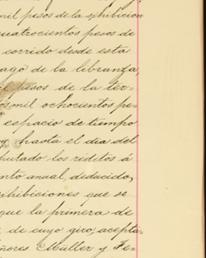 mil pesos de la exhibicion
cuatrocientos pesos de
corrido desde esta
pago de la libranza
mil pesos de la ter-
os mil ochocientos pe-
espacio de tiempo
y hasta el dia del
putado los reditos á
ento anual, deducido
exhibiciones que se
que la primera de
, de cuyo giro, acepta
ñores Müller y Fe-